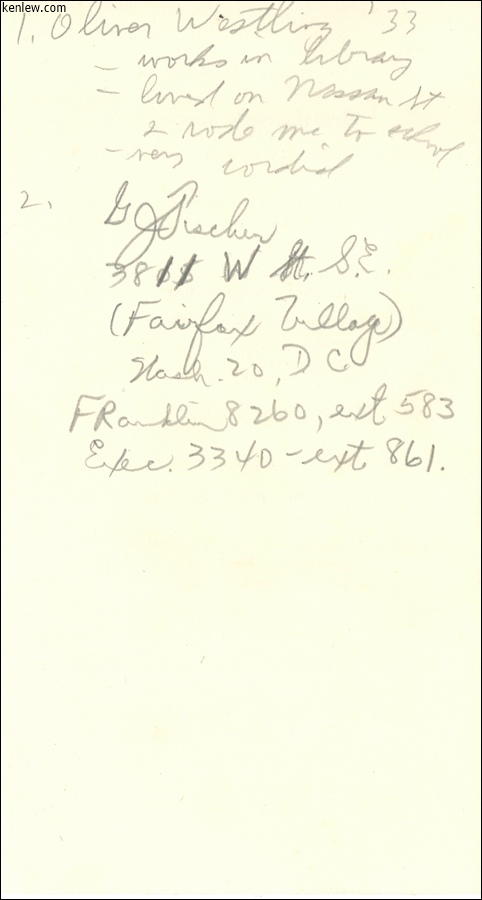 kenlew.com
1. Oliver Westling '33
- works in library
- lived on Nassau St
& rode me to school
- very cordial
2.
G J Fischer
3811 W St. S.E.
(Fairfax Village)
Wash. 20, D C
FRanklin 8260, ext 583
Exec. 3340 - ext 861.